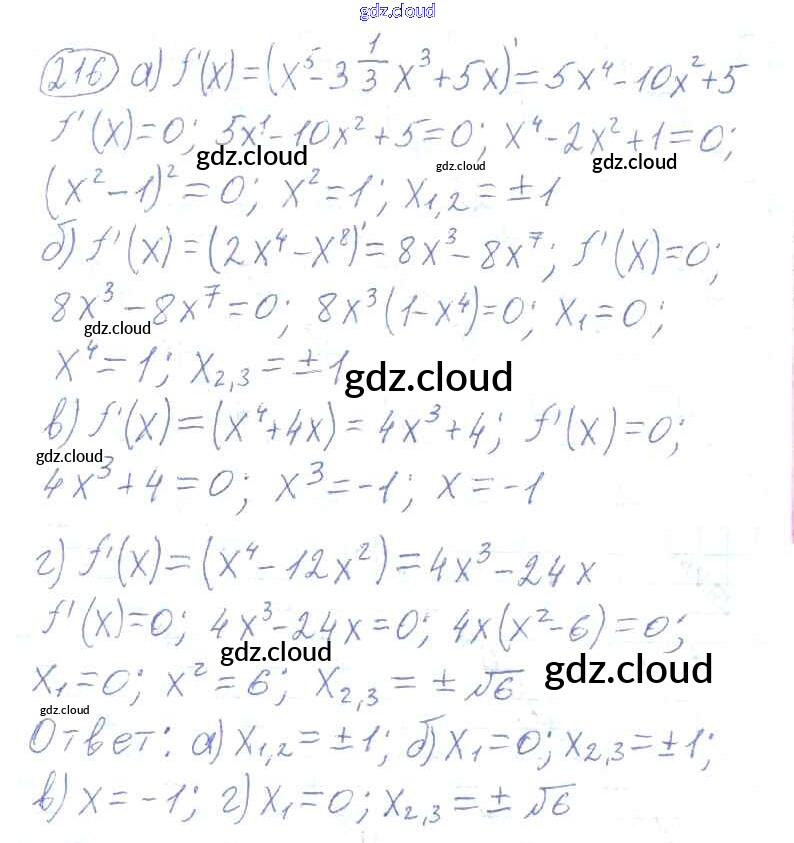 gdz.cloud
216 а) f'(x) = (x⁵ - 3 1/3 x³ + 5x)' = 5x⁴ - 10x² + 5
f'(x) = 0; 5x⁴ - 10x² + 5 = 0; x⁴ - 2x² + 1 = 0;
gdz.cloud gdz.cloud gdz.cloud
(x² - 1)² = 0; x² = 1; x₁,₂ = ±1
б) f'(x) = (2x⁴ - x⁸)' = 8x³ - 8x⁷; f'(x) = 0;
8x³ - 8x⁷ = 0; 8x³(1 - x⁴) = 0; x₁ = 0;
gdz.cloud
x⁴ = 1; x₂,₃ = ±1
gdz.cloud
в) f'(x) = (x⁴ + 4x) = 4x³ + 4; f'(x) = 0;
gdz.cloud
4x³ + 4 = 0; x³ = -1; x = -1
г) f'(x) = (x⁴ - 12x²) = 4x³ - 24x
f'(x) = 0; 4x³ - 24x = 0; 4x(x² - 6) = 0;
gdz.cloud gdz.cloud
x₁ = 0; x² = 6; x₂,₃ = ± √6
gdz.cloud
Ответ: а) x₁,₂ = ±1; б) x₁ = 0; x₂,₃ = ±1;
в) x = -1; г) x₁ = 0; x₂,₃ = ± √6